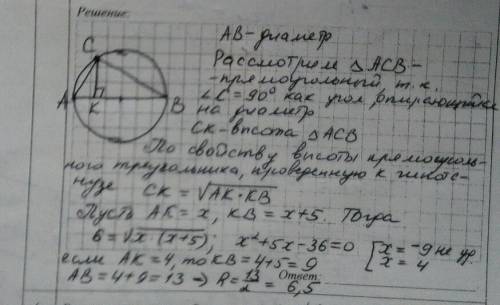 Решение:
AB-диаметр
Рассмотрим △ACB-
-прямоугольный т.к.
∠C=90° как угол, опирающийся
на диаметр
CK-высота △ACB
По свойству высоты прямоуголь-
ного треугольника, проведенную к гипоте-
нузе CK = √AK·KB
Пусть AK = x, KB = x+5. Тогда
6=√x (x+5); x²+5x-36=0 [x=-9 не ур.
x=4
если AK=4, то KB=4+5=9
AB=4+9=13 ⇒ R=13/2=6,5
Ответ:
C
A
K
B